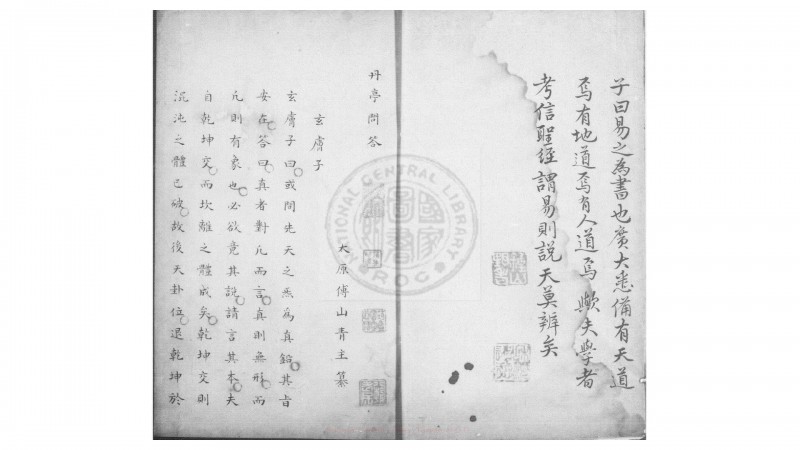 子曰易之為書也廣大悉備有天道
焉有地道焉有人道焉歟夫學者
考信聖經謂易則說天莫辨矣
丹亭問答
大原傅山青主纂
玄膚子
玄膚子曰或問先天之炁為真鉛其旨
安在答曰真者對凡而言真則無形而
凡則有象也必欲竟其說請言其本夫
自乾坤交而坎離之體成矣乾坤交則
混沌之體已破故後天卦位退乾坤於
NATIONAL CENTRAL LIBRARY
ROC
國家圖書館